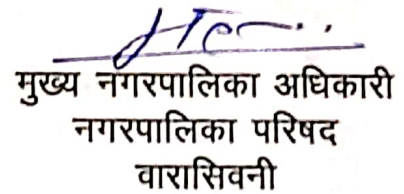 मुख्य नगरपालिका अधिकारी
नगरपालिका परिषद
वारासिवनी